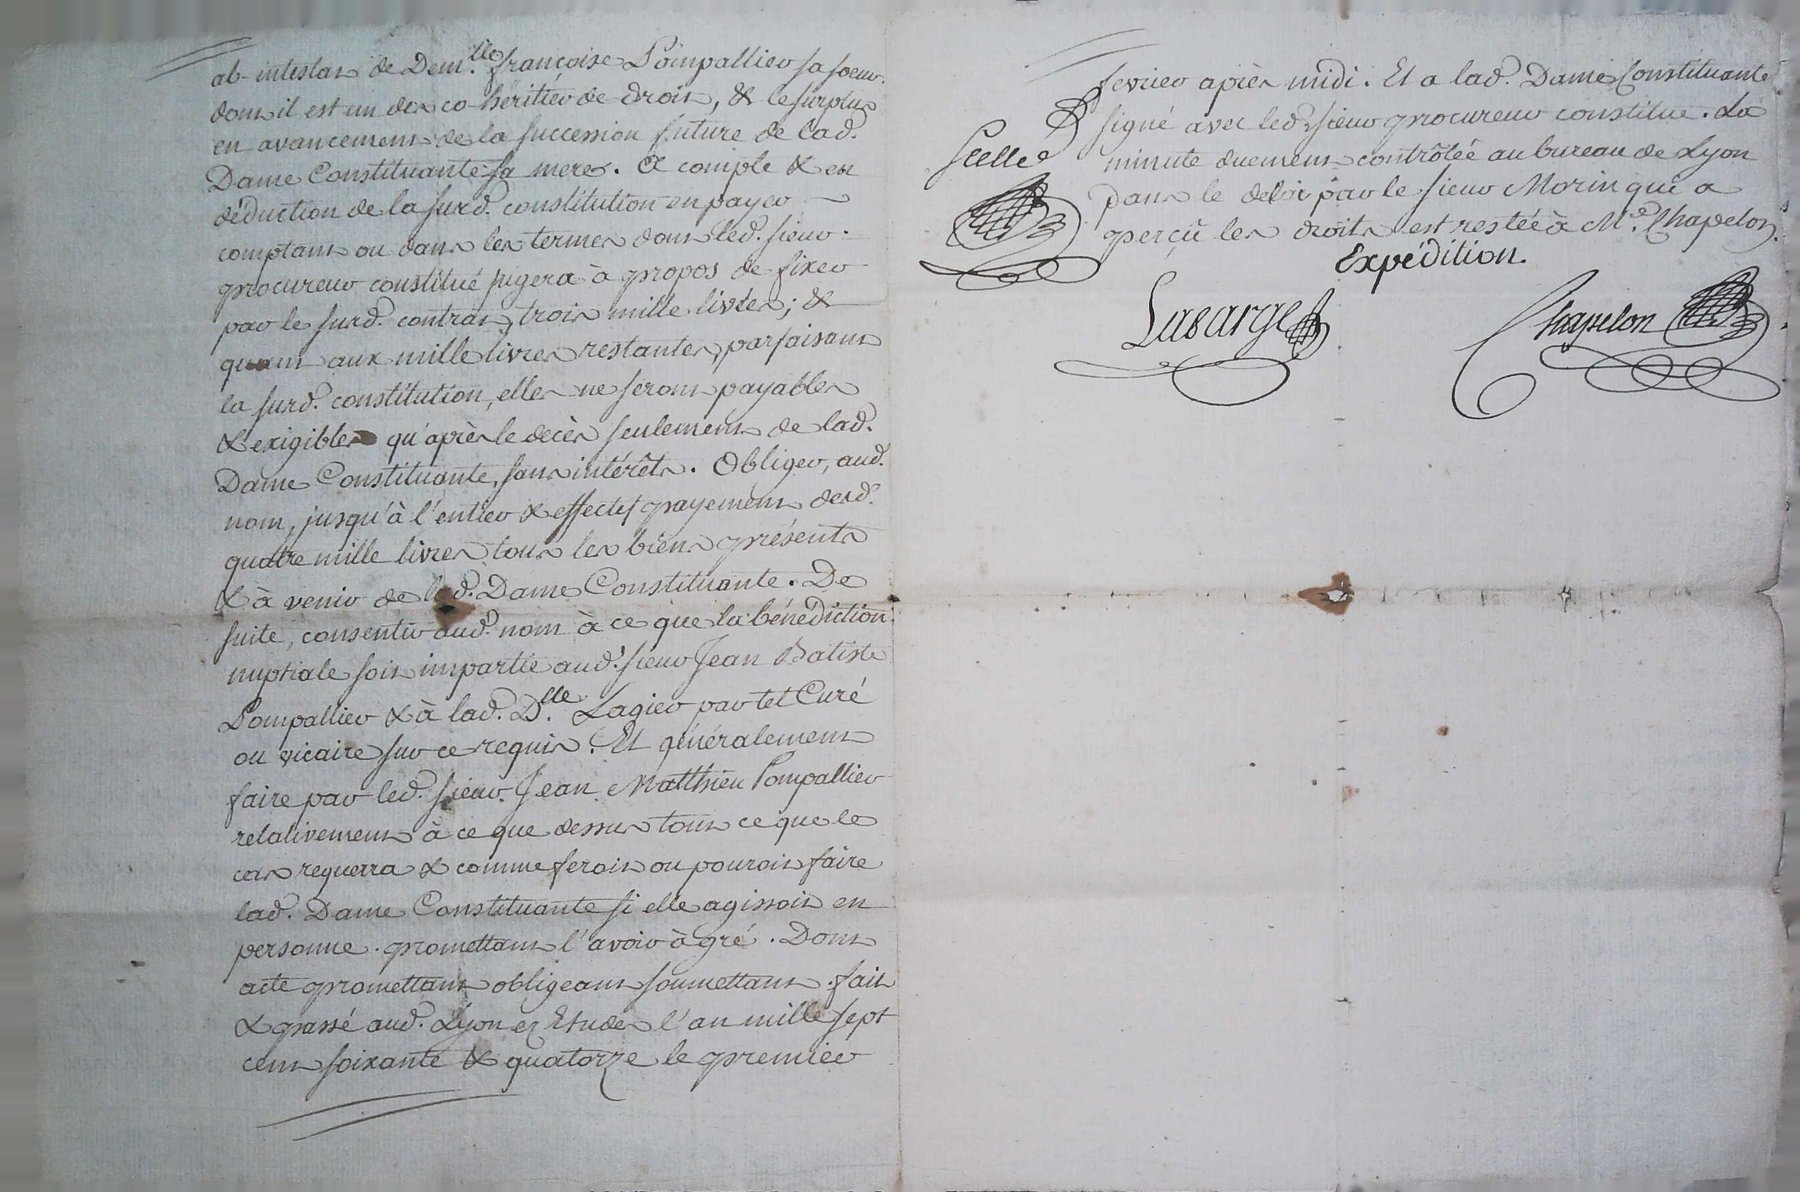 ab-intestat de Dem.lle françoise Pompallier sa soeur
dont il est un des co-héritier de droit, & le surplus
en avancement de la succession future de lad.
Dame Constituante sa mere. A compte & en
déduction de la susd. constitution en payer
comptant ou dans les termes dont led. sieur
procureur constitué jugera à propos de fixer
par le susd. contrat, trois mille livres; &
quant aux mille livres restantes, parfaisant
la susd. constitution, elles ne seront payables
& exigibles qu'après le decès seulement de lad.
Dame Constituante, sans intérêts. Obliger, aud.
nom, jusqu'à l'entier & effectif payement desd.
quatre mille livres tous les biens présents
& à venir de lad. Dame Constituante. De
suite, consentir aud. nom à ce que la bénédiction
nuptiale soit impartie aud. sieur Jean Batiste
Pompallier & à lad. D.lle Lagier par tel Curé
ou vicaire sur ce requis. Et généralement
faire par led. sieur Jean Matthieu Pompallier
relativement à ce que dessus tout ce que le
cas requerra & comme feroit ou pouroit faire
lad. Dame Constituante si elle agissoit en
personne. promettant l'avoir à gré. Dont
acte promettant obligeant soumettant. fait
& passé aud. Lyon ez Etudes l'an mille sept
cent soixante & quatorze le premier
fevrier après midi. Et a lad. Dame Constituante
signé avec led. sieur procureur constitué. La
minute duement contrôlée au bureau de Lyon
dans le délai par le sieur Morin qui a
perçû les droits est restée à M.e Chapelon.
Expédition.
Scellé
Lasarge
Chapelon